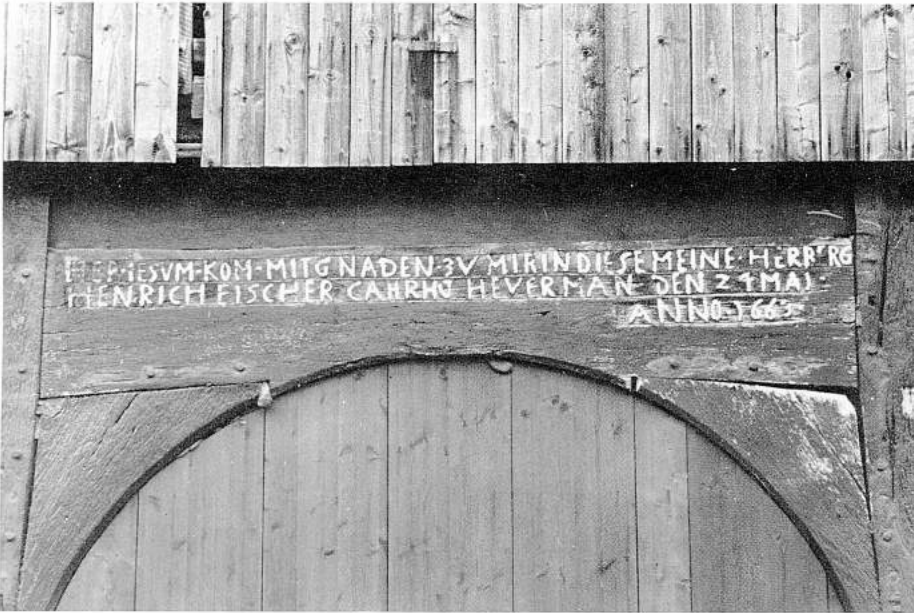 HER·IESVM·KOM·MITGNADEN·ZV MIRINDIESEMEINE·HERB'RG
HENRICH EISCHER CAHRHŪ HEVERMAN DEN 24 MAI·
ANNO·1665